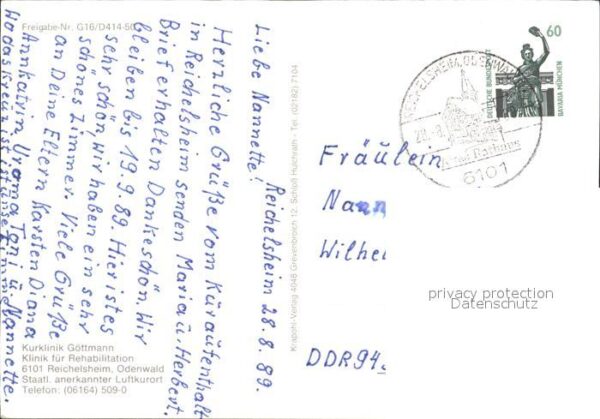 Freigabe-Nr. G16/D414-50
Reichelsheim 28.8.89.
Liebe Nannette!
Herzliche Grüße vom Kuraufenthalt
in Reichelsheim senden Maria u. Herbert.
Brief erhalten Dankeschön. Wir
bleiben bis 19.9.89. Hier ist es
sehr schön, wir haben ein sehr
schönes Zimmer. Viele Grüße
an Deine Eltern Karsten Diana
Annkatrin Uroma Toni u. Nannette.
Wo das Kreuz ist ist unser Zimmer
Kurklinik Göttmann
Klinik für Rehabilitation
6101 Reichelsheim, Odenwald
Staatl. anerkannter Luftkurort
Telefon: (06164) 509-0
Krapohl-Verlag 4048 Grevenbroich 12, Schloß Hülchrath - Tel. (02182) 7104
60
DEUTSCHE BUNDESPOST
BAVARIA MÜNCHEN
REICHELSHEIM, ODENWALD
6101
Fräulein
Nann
Wilhe
DDR 94.
privacy protection
Datenschutz